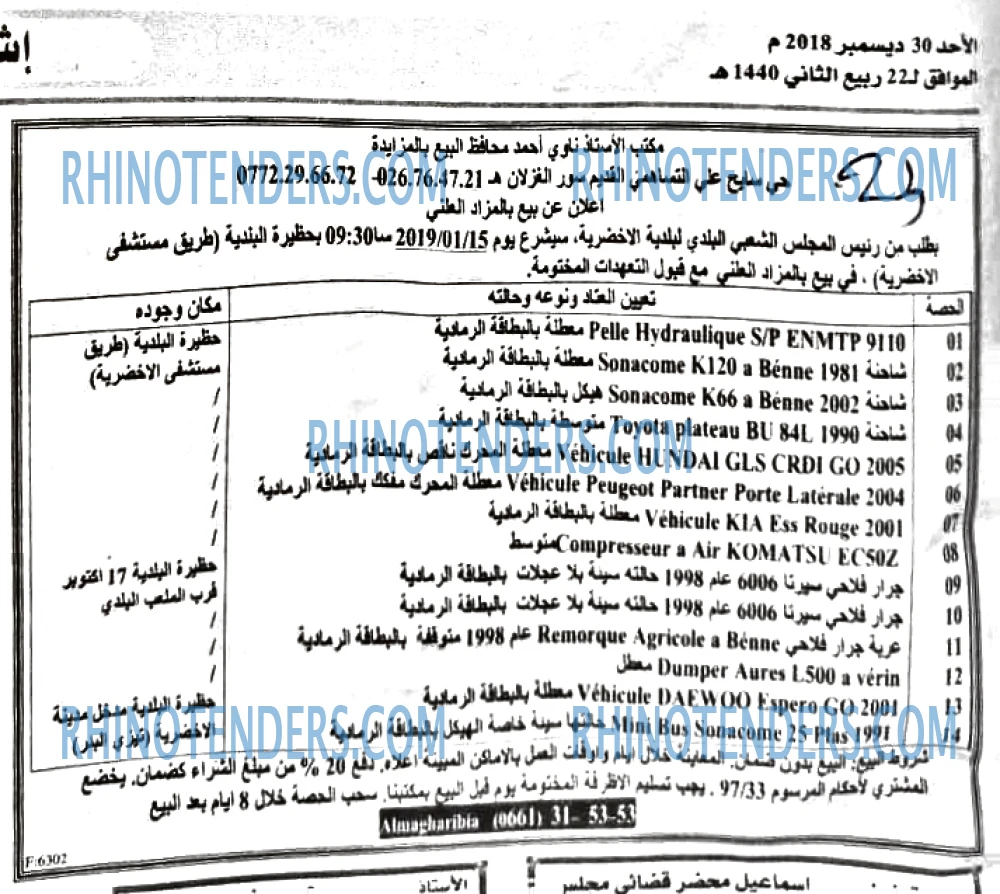 إش
الأحد 30 ديسمبر 2018 م
الموافق لـ22 ربيع الثاني 1440 هـ
مكتب الأستاذ ناوي أحمد محافظ البيع بالمزايدة
حي سايح علي التساهمي القديم سور الغزلان هـ 026.76.47.21- 0772.29.66.72
اعلان عن بيع بالمزاد العلني
بطلب من رئيس المجلس الشعبي البلدي لبلدية الاخضرية، سيشرع يوم 2019/01/15 سا09:30 بحظيرة البلدية (طريق مستشفى
الاخضرية) ، في بيع بالمزاد العلني مع قبول التعهدات المختومة.
الحصة تعيين العتاد ونوعه وحالته مكان وجوده
01 Pelle Hydraulique S/P ENMTP 9110 معطلة بالبطاقة الرمادية حظيرة البلدية (طريق
02 شاحنة Sonacome K120 a Bénne 1981 معطلة بالبطاقة الرمادية مستشفى الاخضرية)
03 شاحنة Sonacome K66 a Bénne 2002 هيكل بالبطاقة الرمادية /
04 شاحنة Toyota plateau BU 84L 1990 متوسطة بالبطاقة الرمادية /
05 Véhicule HUNDAI GLS CRDI GO 2005 معطلة المحرك ناقص بالبطاقة الرمادية /
06 Véhicule Peugeot Partner Porte Latérale 2004 معطلة المحرك مفكك بالبطاقة الرمادية /
07 Véhicule KIA Ess Rouge 2001 معطلة بالبطاقة الرمادية /
08 Compresseur a Air KOMATSU EC50Z متوسط /
09 جرار فلاحي سيرتا 6006 عام 1998 حالته سيئة بلا عجلات بالبطاقة الرمادية حظيرة البلدية 17 اكتوبر
10 جرار فلاحي سيرتا 6006 عام 1998 حالته سيئة بلا عجلات بالبطاقة الرمادية قرب الملعب البلدي
11 عربة جرار فلاحي Remorque Agricole a Bénne عام 1998 متوقفة بالبطاقة الرمادية /
12 Dumper Aures L500 a vérin معطل /
13 Véhicule DAEWOO Espero GO 2001 معطلة بالبطاقة الرمادية حظيرة البلدية مدخل مدينة
14 Mini Bus Sonacome 25 Plas 1991 حالتها سيئة خاصة الهيكل بالبطاقة الرمادية الاخضرية (تيزي البير)
شروط البيع: البيع بدون ضمان- المعاينة خلال أيام وأوقات العمل بالاماكن المبينة اعلاه. دفع 20 % من مبلغ الشراء كضمان. يخضع
المشتري لأحكام المرسوم 97/33 . يجب تسليم الاظرفة المختومة يوم قبل البيع بمكتبنا. سحب الحصة خلال 8 ايام بعد البيع
Almagharibia (0661) 31- 53-53
F:6302
الأستاذ
اسماعيل محضر قضائي مجلس
RHINOTENDERS.COM
RHINOTENDERS.COM
RHINOTENDERS.COM
RHINOTENDERS.COM
RHINOTENDERS.COM